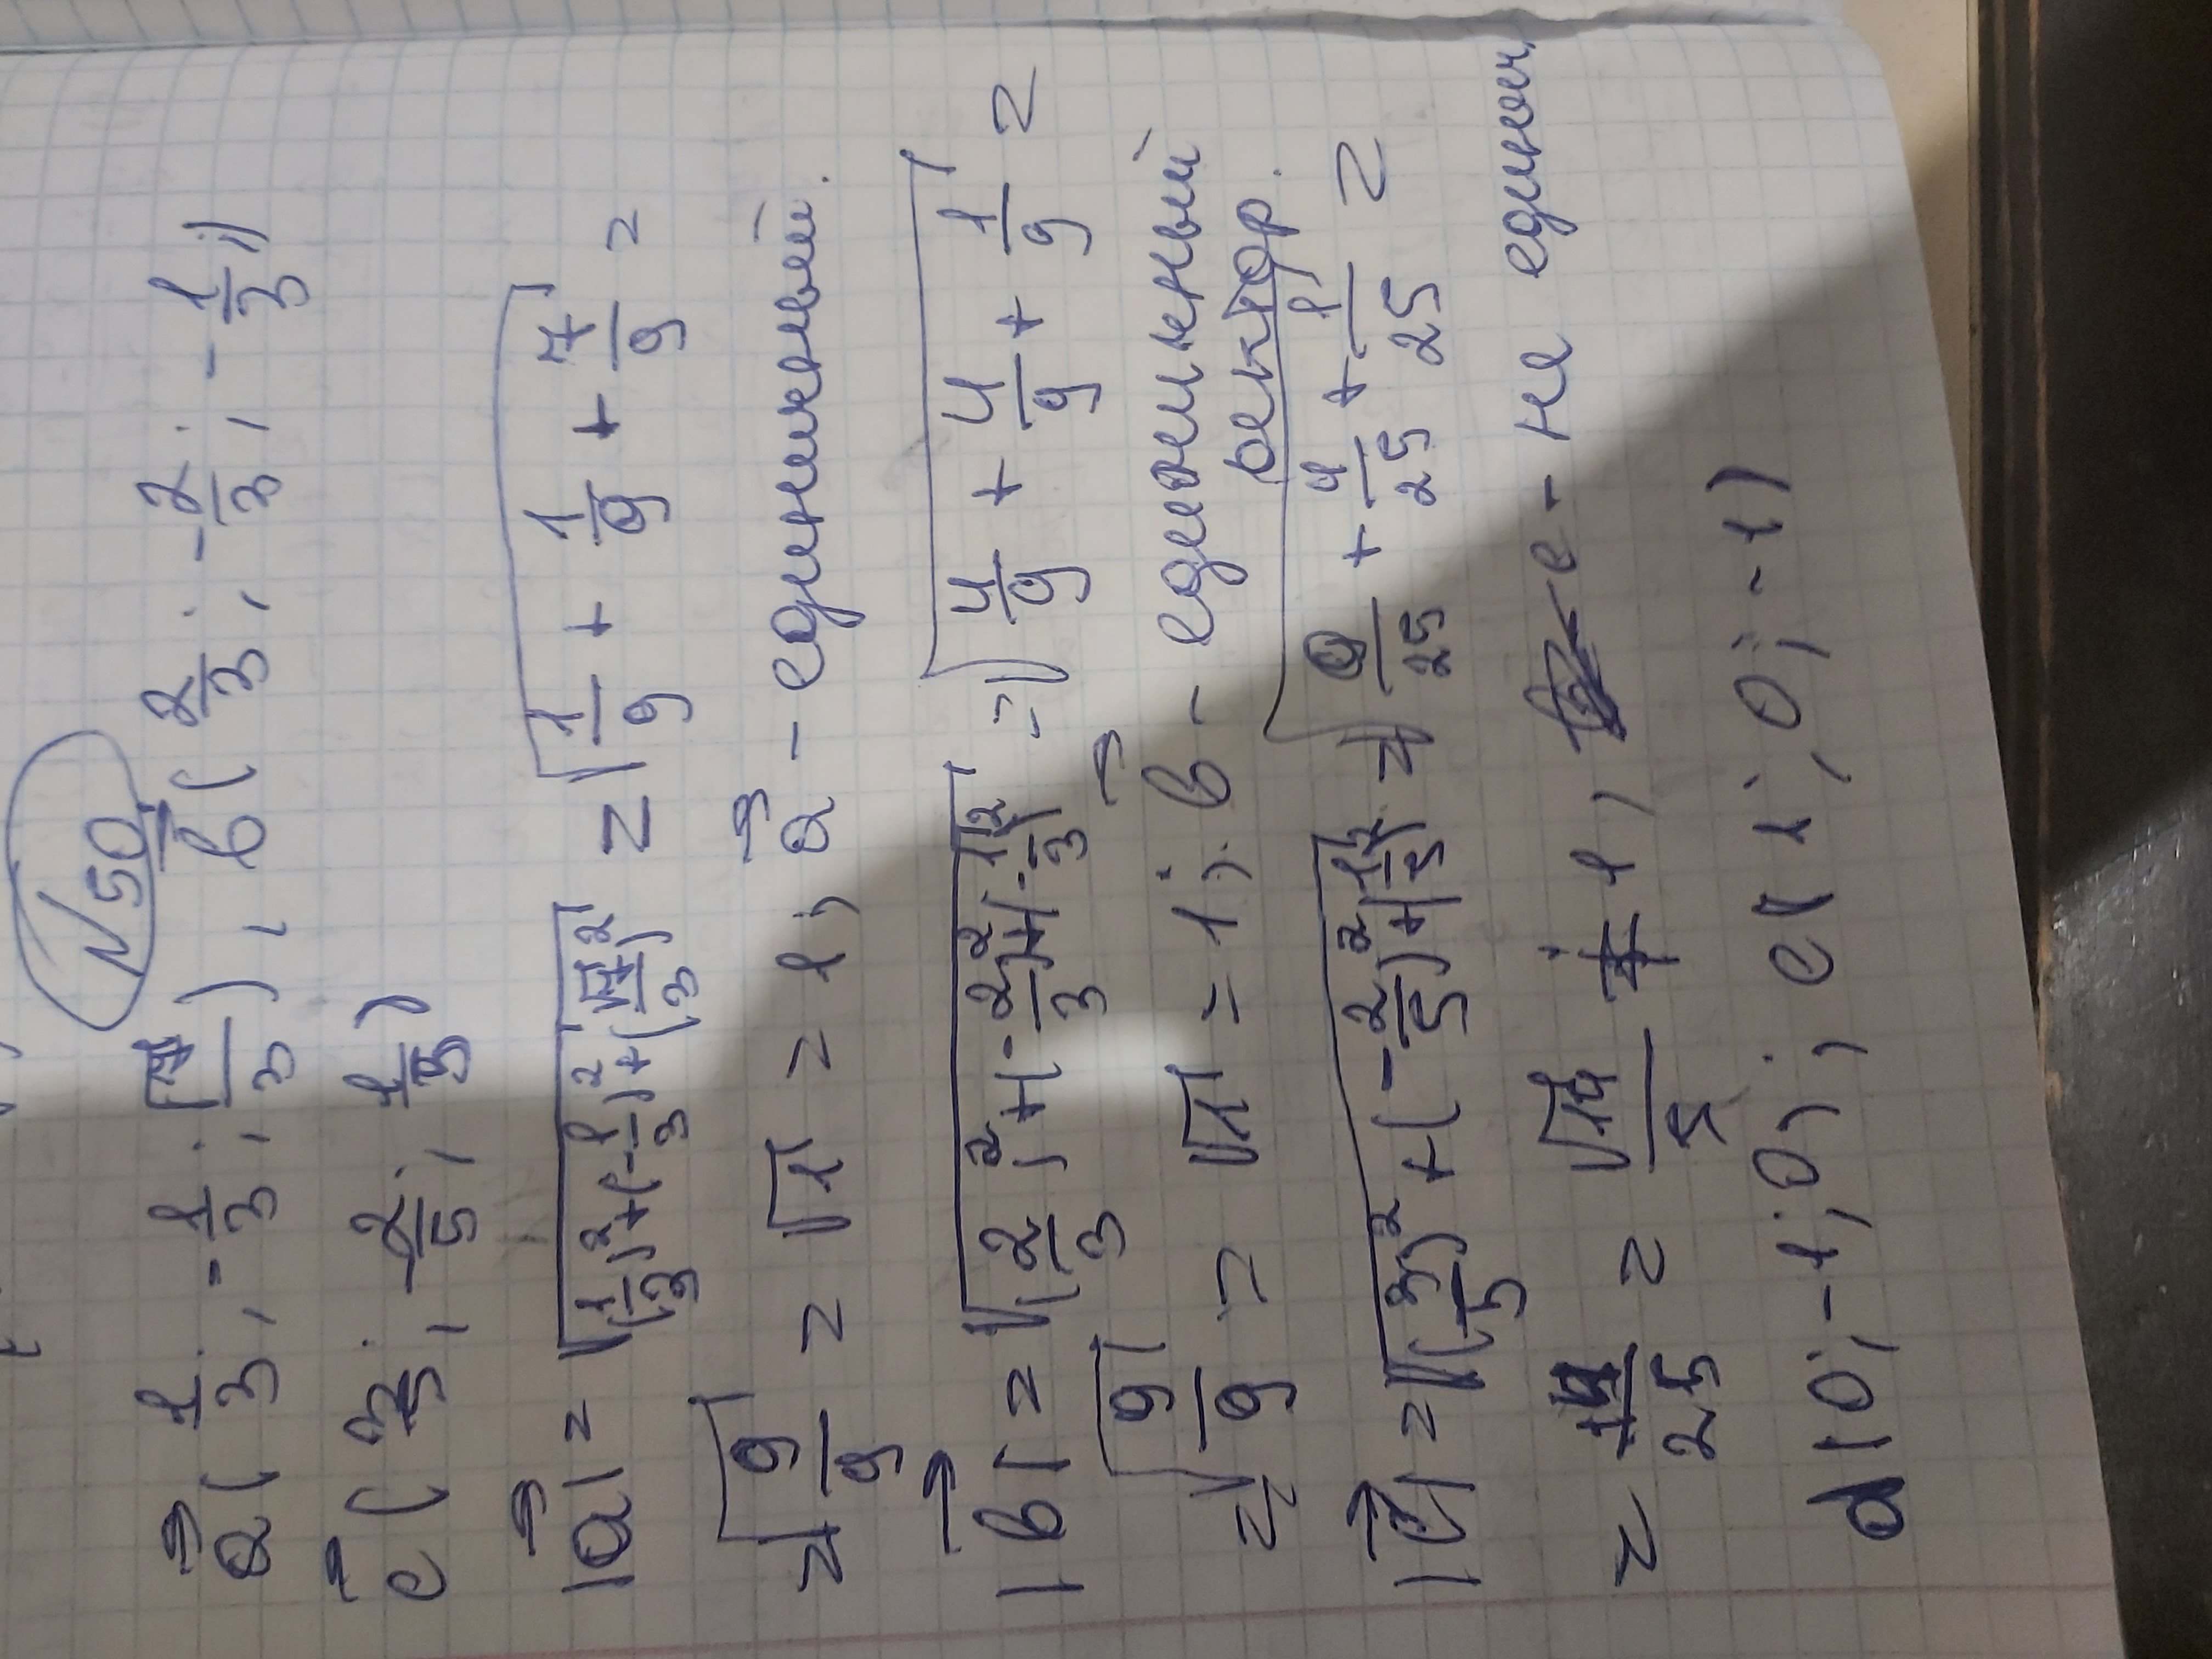 N50
a⃗(1/3; -1/3; √7/3), b⃗(2/3; -2/3; -1/3)
c⃗(3/5; -2/5; 1/5)
|a⃗| = √((1/3)² + (-1/3)² + (√7/3)²) = √(1/9 + 1/9 + 7/9) =
= √(9/9) = √1 = 1; a⃗ - единичный.
|b⃗| = √((2/3)² + (-2/3)² + (-1/3)²) = √(4/9 + 4/9 + 1/9) =
= √(9/9) = √1 = 1; b⃗ - единичный
вектор.
|c⃗| = √((3/5)² + (-2/5)² + (1/5)²) = √(9/25 + 4/25 + 1/25) =
= 14/25 = √14/5 ≠ 1, c - не единич.
d(0; -1; 0); e(1; 0; -1)